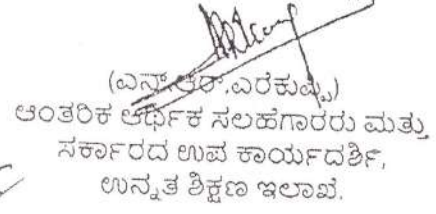 (ಎನ್.ಆರ್.ಎರೆಕುಪ್ಪಿ)
ಆಂತರಿಕ ಆರ್ಥಿಕ ಸಲಹೆಗಾರರು ಮತ್ತು
ಸರ್ಕಾರದ ಉಪ ಕಾರ್ಯದರ್ಶಿ,
ಉನ್ನತ ಶಿಕ್ಷಣ ಇಲಾಖೆ.